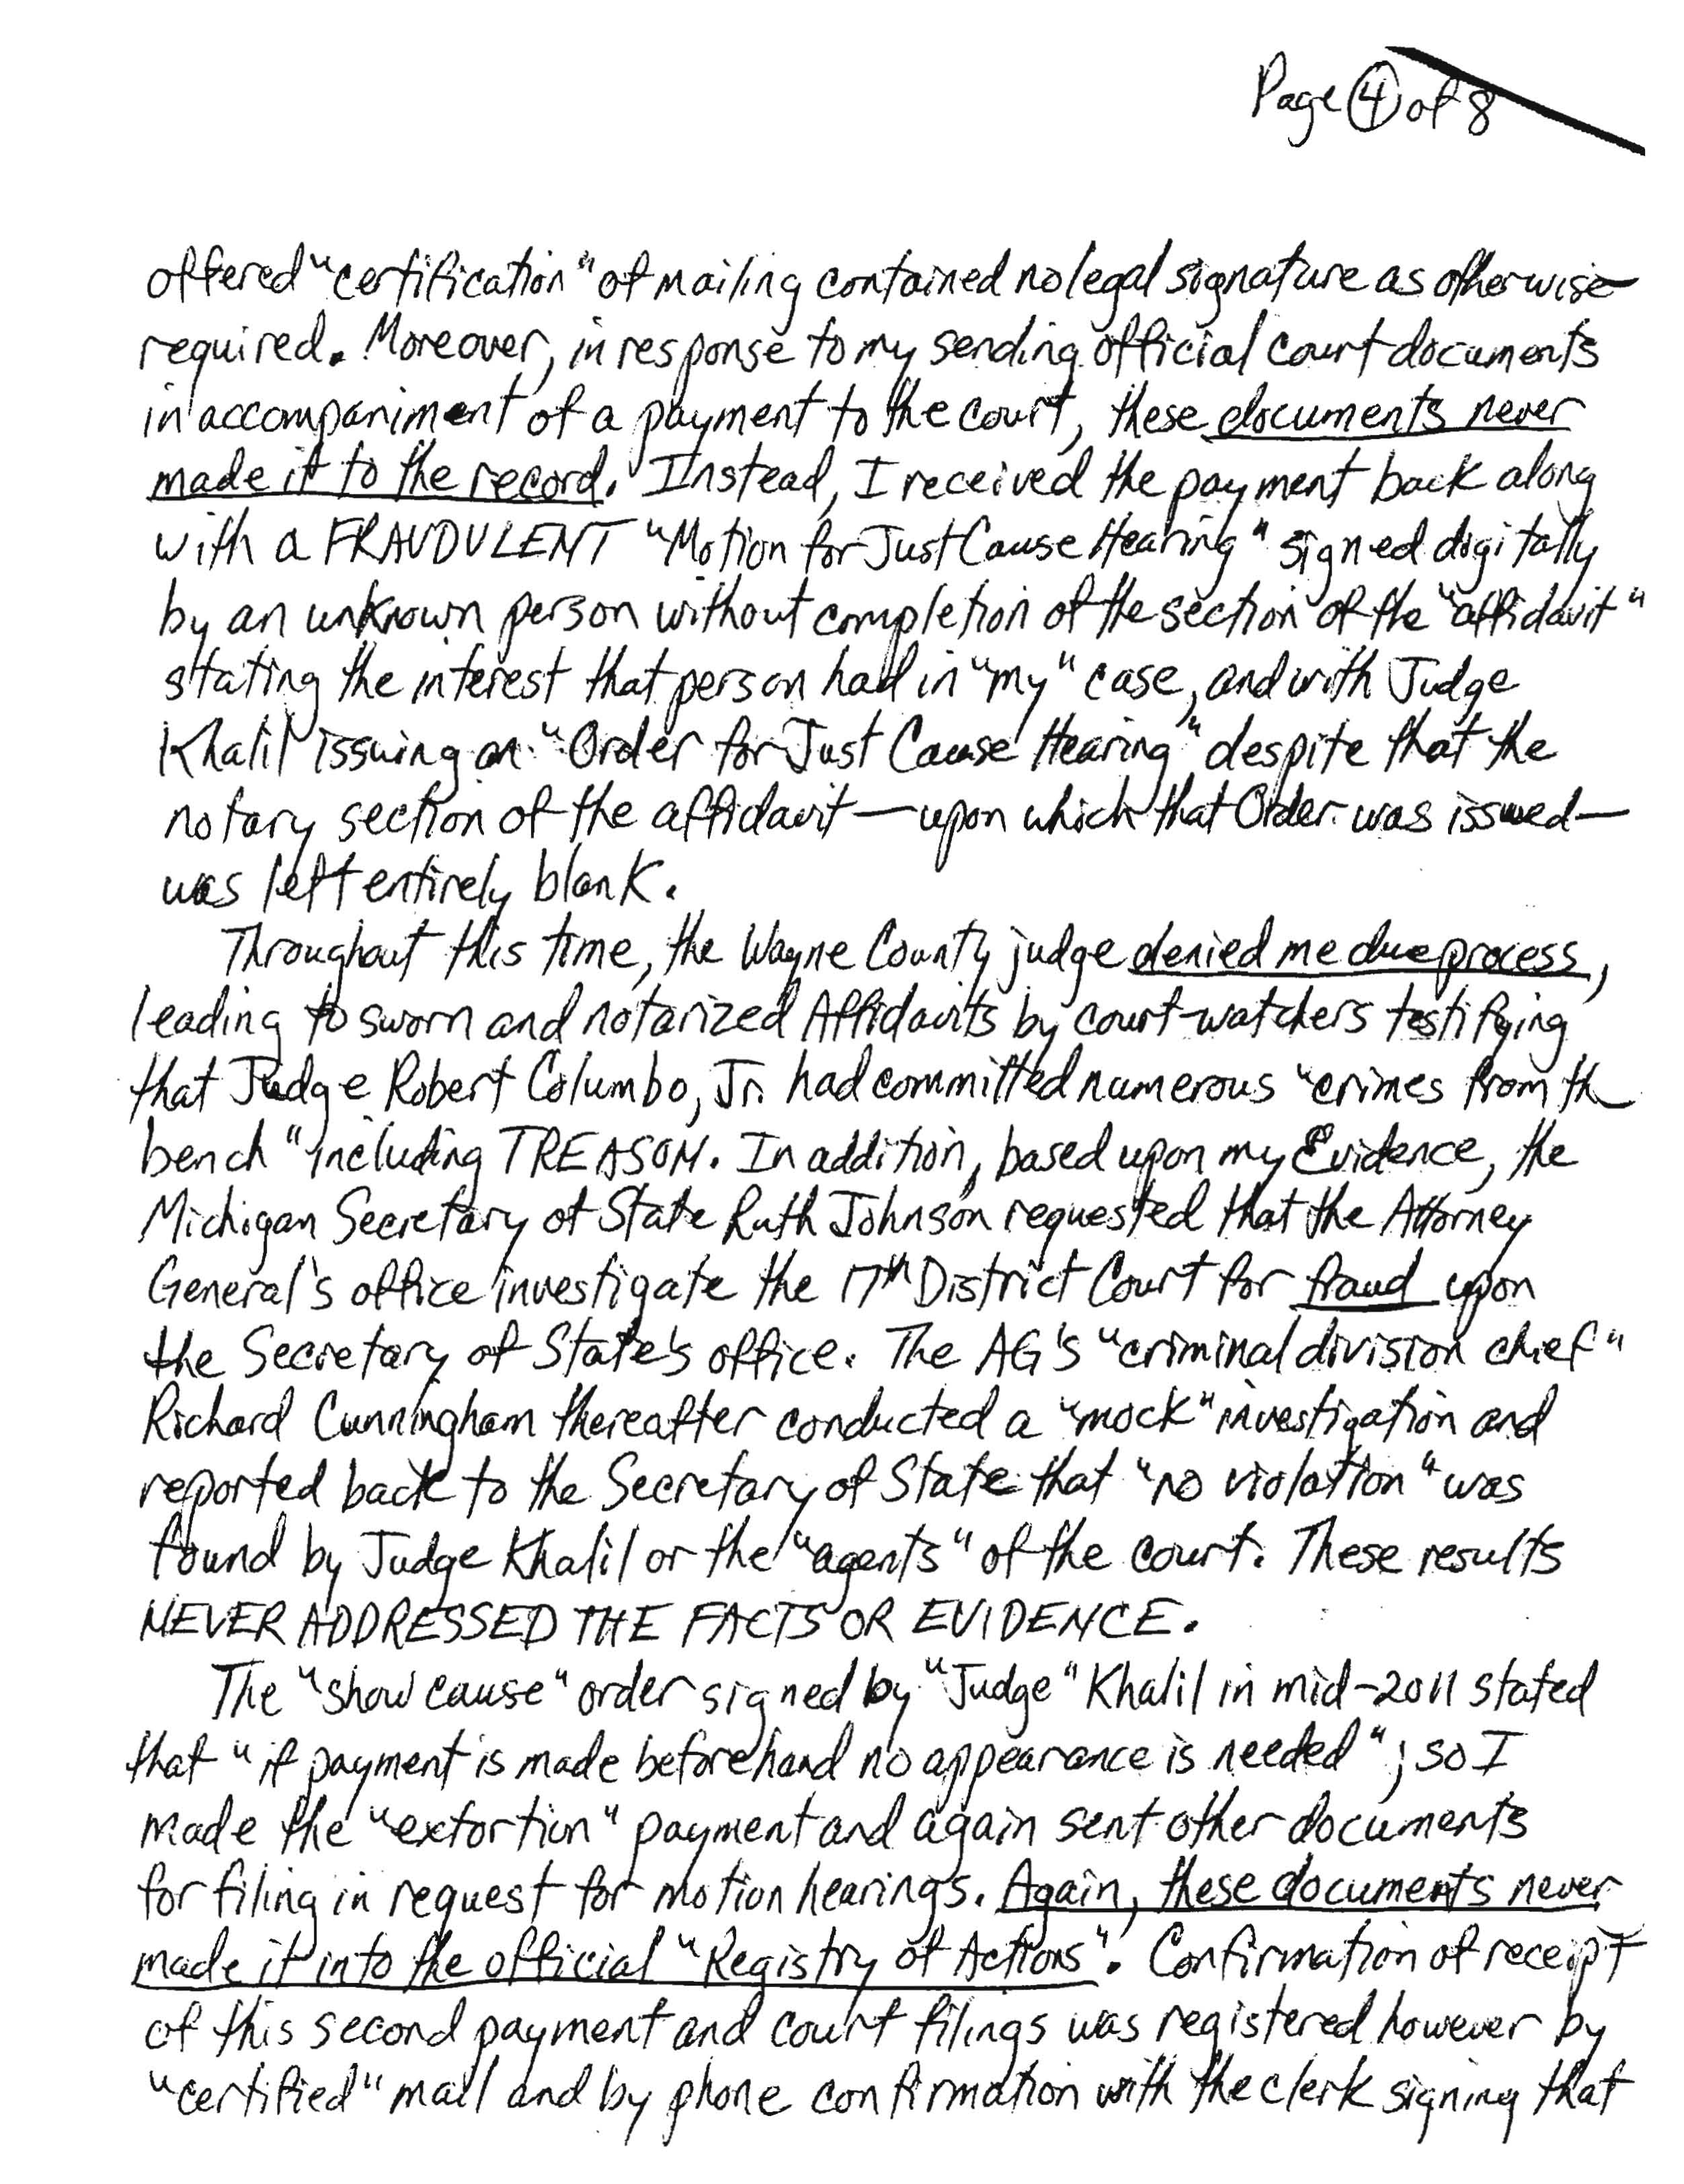 Page 4 of 8
offered "certification" of mailing contained no legal signature as otherwise
required. Moreover, in response to my sending official court documents
in accompaniment of a payment to the court, these documents never
made it to the record. Instead, I received the payment back along
with a FRAUDULENT "Motion for Just Cause Hearing" signed digitally
by an unknown person without completion of the section of the "affidavit"
stating the interest that person had in "my" case, and with Judge
Khalil issuing an "Order for Just Cause Hearing" despite that the
notary section of the affidavit — upon which that Order was issued —
was left entirely blank.
Throughout this time, the Wayne County judge denied me due process,
leading to sworn and notarized Affidavits by court-watchers testifying
that Judge Robert Columbo, Jr. had committed numerous "crimes from th
bench" including TREASON. In addition, based upon my Evidence, the
Michigan Secretary of State Ruth Johnson requested that the Attorney
General's office investigate the 17th District Court for fraud upon
the Secretary of State's office. The AG's "criminal division chief"
Richard Cunningham thereafter conducted a "mock" investigation and
reported back to the Secretary of State that "no violation" was
found by Judge Khalil or the "agents" of the court. These results
NEVER ADDRESSED THE FACTS OR EVIDENCE.
The "show cause" order signed by "Judge" Khalil in mid-2011 stated
that "if payment is made beforehand no appearance is needed"; so I
made the "extortion" payment and again sent other documents
for filing in request for motion hearings. Again, these documents never
made it into the official "Registry of Actions". Confirmation of receipt
of this second payment and court filings was registered however by
"certified" mail and by phone confirmation with the clerk signing that